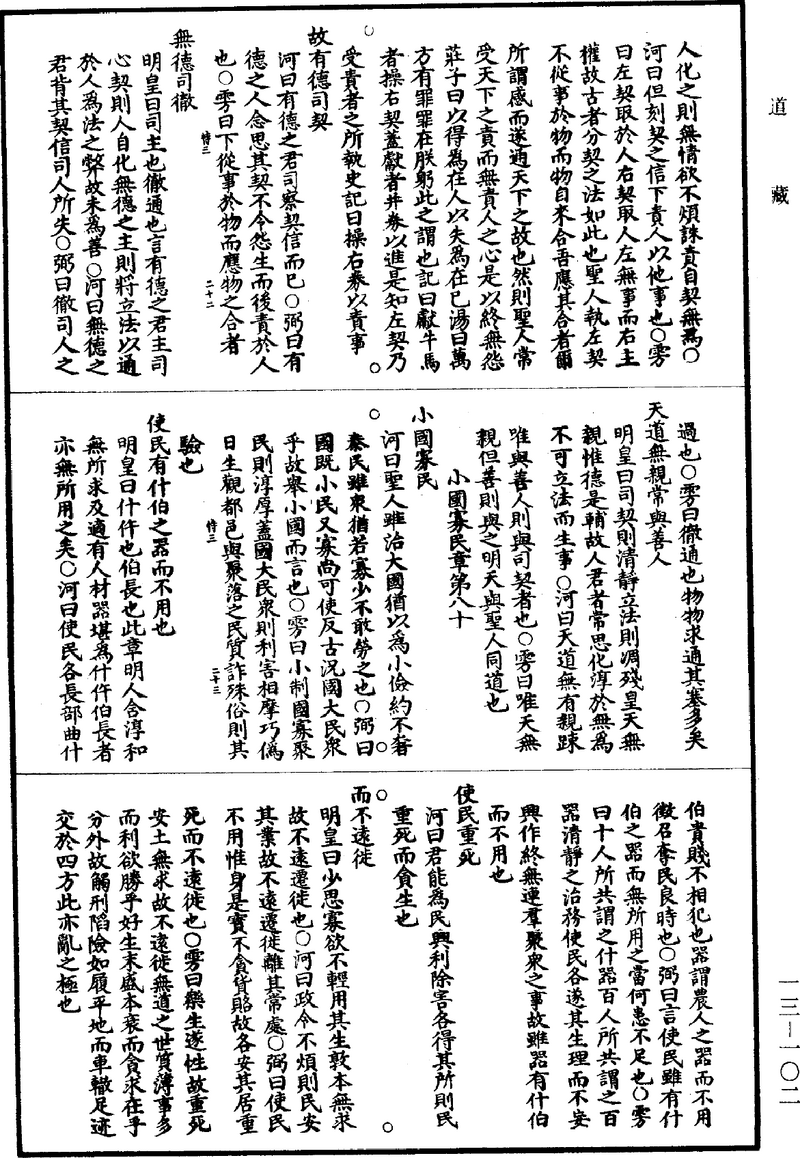 道藏
人化之則無情欲不煩誅責自契無爲○
河曰但刻契之信下責人以他事也○雱
曰左契取於人右契取人左無事而右主
權故古者分契之法如此也聖人執左契
不從事於物而物自來合吾應其合者爾
所謂感而遂通天下之故也然則聖人常
受天下之責而無責人之心是以終無怨
莊子曰以得爲在人以失爲在已湯曰萬
方有罪罪在朕躬此之謂也記曰獻牛馬
者操右契蓋獻者并券以進是知左契乃
受責者之所執史記曰操右券以責事
故有德司契
河曰有德之君司察契信而已○弼曰有
德之人念思其契不令怨生而後責於人
也○雱曰下從事於物而應物之合者
恃三
二十二
無德司徹
明皇曰司主也徹通也言有德之君主司
心契則人自化無德之主則將立法以通
於人爲法之弊故未爲善○河曰無德之
君背其契信司人所失○弼曰徹司人之
過也○雱曰徹通也物物求通其塞多矣
天道無親常與善人
明皇曰司契則清靜立法則凋殘皇天無
親惟德是輔故人君者常思化淳於無爲
不可立法而生事○河曰天道無有親踈
唯與善人則與司契者也○雱曰唯天無
親但善則與之明天與聖人同道也
小國寡民章第八十
小國寡民
河曰聖人雖治大國猶以爲小儉約不奢
泰民雖衆猶若寡少不敢勞之也○弼曰
國既小民又寡尚可使反古況國大民衆
乎故舉小國而言也○雱曰小制國寡聚
民則淳厚蓋國大民衆則利害相摩巧僞
日生觀都邑與聚落之民質詐殊俗則其
恃三
二十三
驗也
使民有什伯之器而不用也
明皇曰什仵也伯長也此章明人含淳和
無所求及適有人材器堪爲什仵伯長者
亦無所用之矣○河曰使民各長部曲什
伯貴賤不相犯也器謂農人之器而不用
徵召奪民良時也○弼曰言使民雖有什
伯之器而無所用之當何患不足也○雱
曰十人所共謂之什器百人所共謂之百
器清靜之治務使民各遂其生理而不妄
興作終無連羣聚衆之事故雖器有什伯
而不用也
使民重死
河曰君能爲民興利除害各得其所則民
重死而貪生也
而不遠徙
明皇曰少思寡欲不輕用其生敦本無求
故不遠遷徙也○河曰政令不煩則民安
其業故不遠遷徙離其常處○弼曰使民
不用惟身是寶不貪貨賂故各安其居重
死而不遠徙也○雱曰樂生遂性故重死
安土無求故不遠徙無道之世質薄事多
而利欲勝乎好生末盛本衰而貪求在乎
分外故觸刑陷險如履平地而車轍足迹
交於四方此亦亂之極也
一三—一〇二